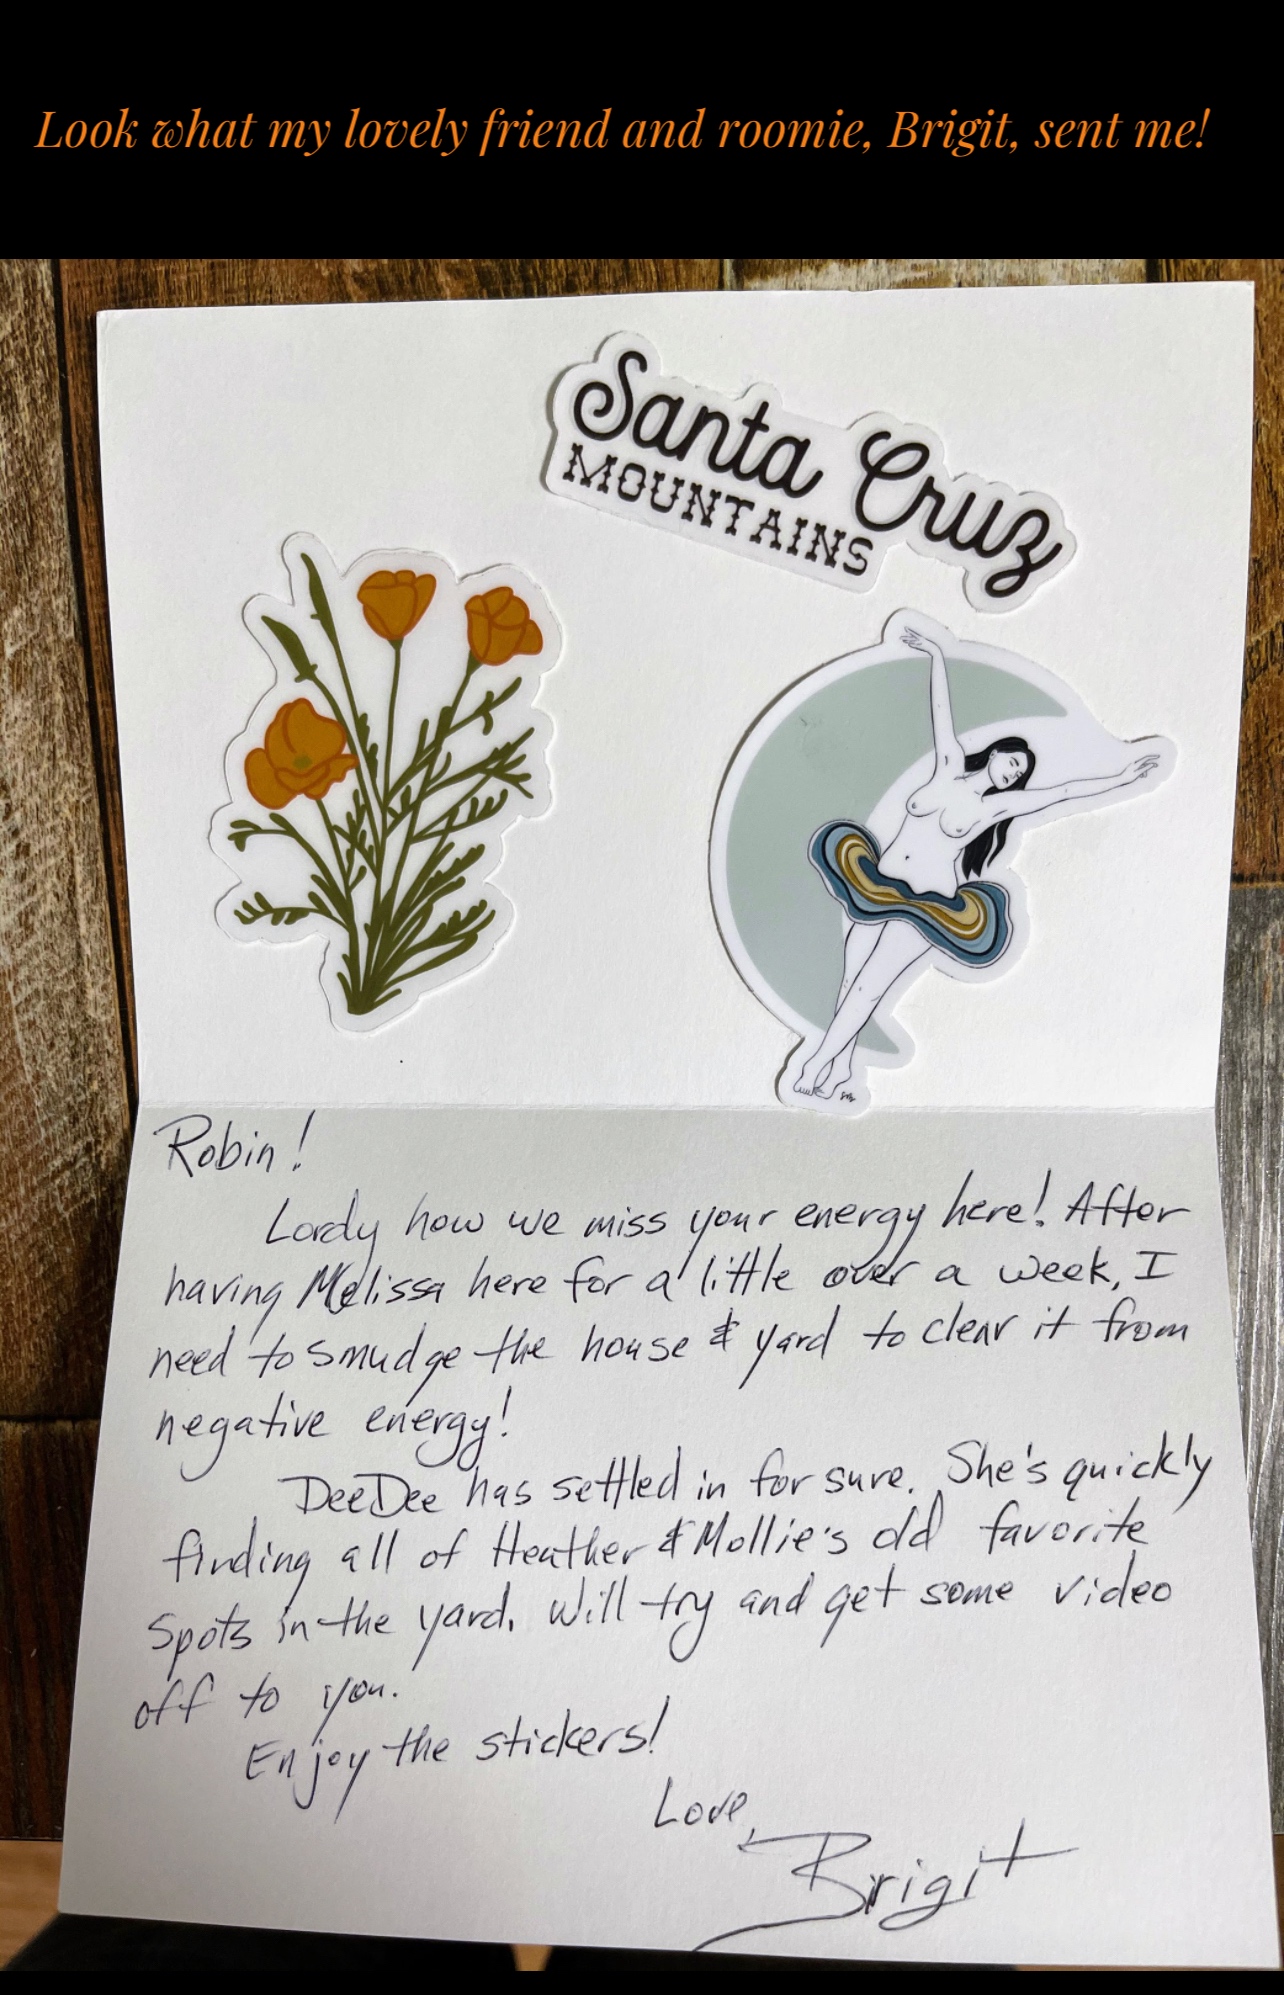 Look what my lovely friend and roomie, Brigit, sent me!
Santa Cruz
MOUNTAINS
Robin!
Lordy how we miss your energy here! After
having Melissa here for a little over a week, I
need to smudge the house & yard to clear it from
negative energy!
DeeDee has settled in for sure. She's quickly
finding all of Heather & Mollie's old favorite
spots in the yard. Will try and get some video
off to you.
Enjoy the stickers!
Love,
Brigit